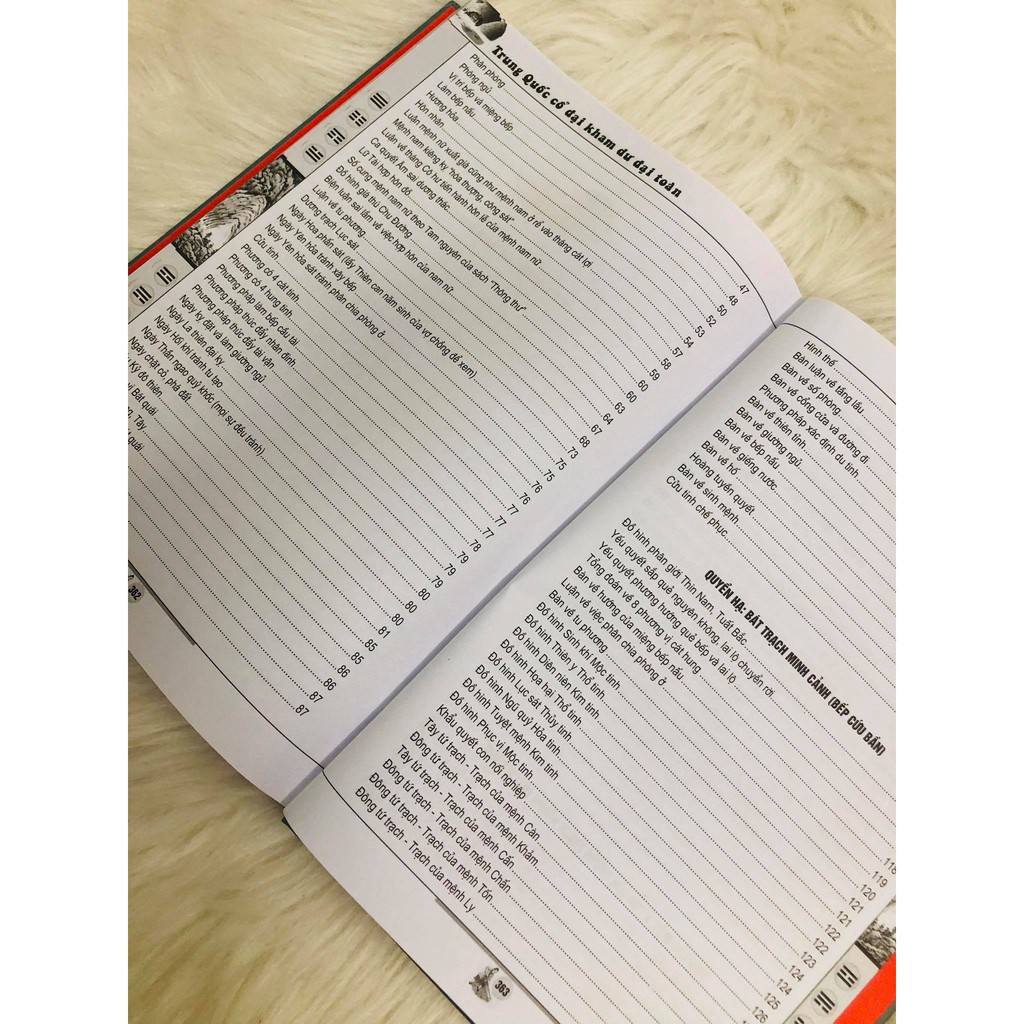 Trung Quốc cổ đại kham dư đại toàn
Phân phòng
Phòng ngủ
Vị trí bếp và miệng bếp
Làm bếp nấu
Hương hỏa
Hôn nhân
Luận mệnh nữ xuất giá cũng như mệnh nam ở rể vào tháng cát lợi
Mệnh nam kiêng kỵ "hòa thượng, công sát"
Luận về tháng Có hư tiến hành hôn lễ của mệnh nam nữ
Ca quyết Âm sai dương thác
Lữ Tài hợp hôn đồ
Số cung mệnh nam nữ theo Tam nguyên của sách "Thông thư"
Đồ hình giá thú Chu Đường
Biện luận sai lầm về việc hợp hôn của nam nữ
Luận về tu phương
Dương trạch Lục sát
Ngày Hoa phấn sát (lấy Thiên can năm sinh của vợ chồng để xem)
Ngày Yên hỏa tránh xây bếp
Ngày Yên hỏa sát tránh phân chia phòng ở
Cửu tinh
Phương có 4 cát tinh
Phương có 4 hung tinh
Phương pháp làm bếp cầu tài
Phương pháp thúc đẩy nhân đinh
Phương pháp thúc đẩy tài vận
Ngày kỵ đặt và làm giường ngủ
Ngày La thiên đại kỵ
Ngày Hối khí tránh tu tạo
Ngày Thần ngao quỷ khốc (mọi sự đều tránh)
Ngày chặt cỏ, phá đất
Kỵ đô thiên
Bát quái
Tây
quái
47
48
50
52
53
54
57
58
59
60
60
63
64
67
68
73
75
75
76
76
77
77
77
78
79
79
80
80
81
85
85
86
86
87
87
362
Hình thế
Bàn luận về tầng lầu
Bàn về số phòng
Bàn về cổng cửa và đường đi
Phương pháp xác định du tinh
Bàn về thiên tỉnh
Bàn về giường ngủ
Bàn về bếp nấu
Bàn về giếng nước
Bàn về hố
Hoàng tuyền quyết
Bàn về sinh mệnh
Cửu tinh chế phục
QUYỂN HẠ: BÁT TRẠCH MINH CẢNH (BẾP CỨU BẦN)
Đồ hình phân giới Thìn Nam, Tuất Bắc
Yếu quyết sắp quẻ nguyên không, lai lộ chuyển rời
Yếu quyết phương hướng quẻ bếp và lai lộ
Tổng đoán về 8 phương vị cát hung
Bàn về hướng của miệng bếp nấu
Luận về việc phân chia phòng ở
Bàn về tu phương
Đồ hình Sinh khí Mộc tinh
Đồ hình Thiên y Thổ tinh
Đồ hình Diên niên Kim tinh
Đồ hình Họa hại Thổ tinh
Đồ hình Lục sát Thủy tinh
Đồ hình Ngũ quỷ Hỏa tinh
Đồ hình Tuyệt mệnh Kim tinh
Đồ hình Phục vị Mộc tinh
Khẩu quyết con nối nghiệp
Tây tứ trạch - Trạch của mệnh Càn
Đông tứ trạch - Trạch của mệnh Khảm
Tây tứ trạch - Trạch của mệnh Cấn
Đông tứ trạch - Trạch của mệnh Chấn
Đông tứ trạch - Trạch của mệnh Tốn
Đông tứ trạch - Trạch của mệnh Ly
118
119
120
121
121
122
122
123
124
124
125
126
363